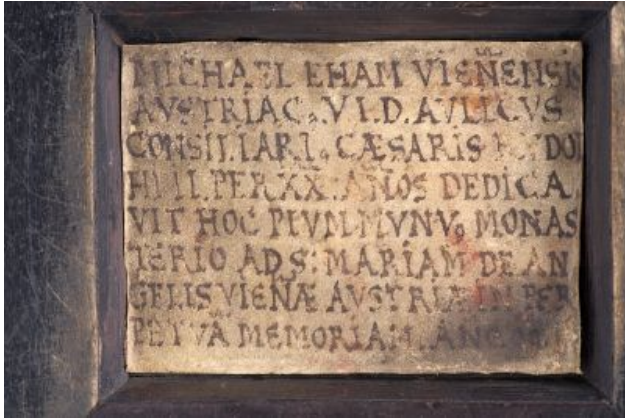 MICHAEL EHAM VIEÑENSIS
AVSTRIAC9. V I. D. AVLICVS
CONSILIARI9 CÆSARIS
PER XX. AÑOS DEDICA
VIT HOC PIVM MVNV9 MONAS
TERIO AD S: MARIAM DE AN
GELIS VIENÆ AVSTRIÆ IN PER
PETVA MEMORIAM.